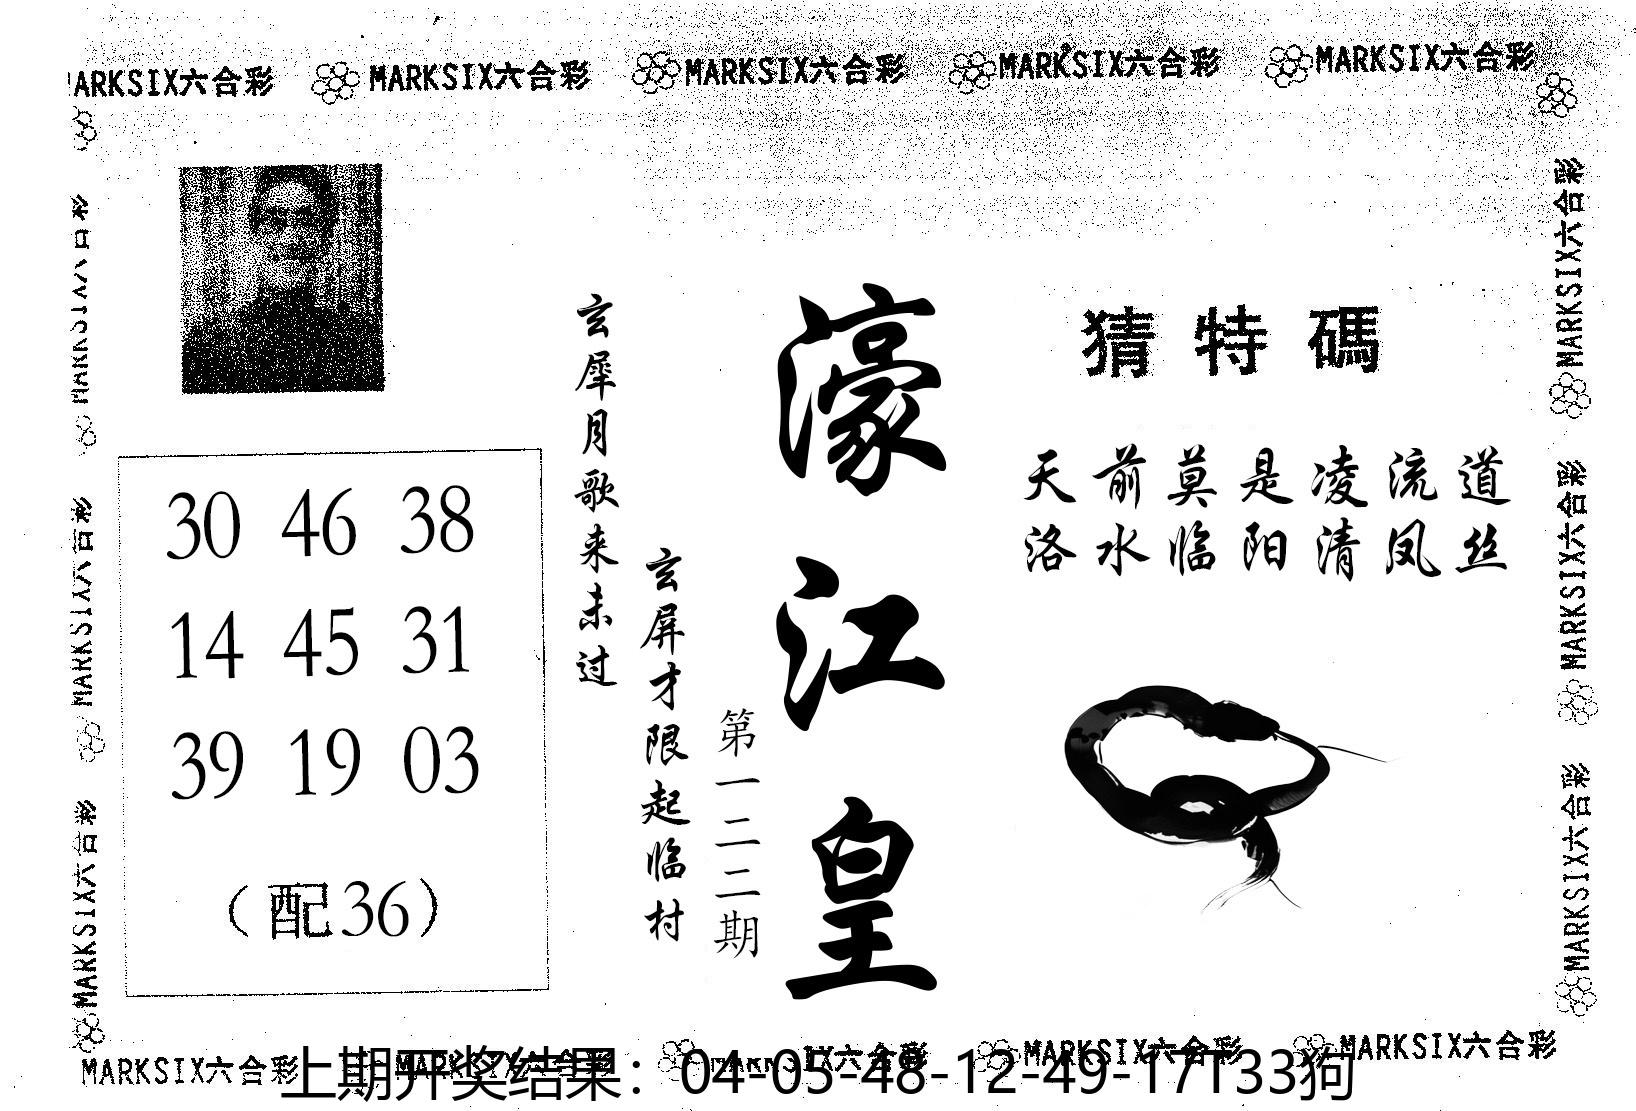 MARKSIX六合彩 MARKSIX六合彩 MARKSIX六合彩 MARKSIX六合彩 MARKSIX六合彩
MARKSIX六合彩
MARKSIX六合彩
MARKSIX六合彩
30 46 38
14 45 31
39 19 03
(配36)
玄犀月歌来未过
玄屏才限起临村
第一二二期
濠江皇
猜特碼
天前莫是凌流道
洛水临阳清凤丝
MARKSIX六合彩
MARKSIX六合彩
MARKSIX六合彩
MARKSIX六合彩 MARKSIX六合彩 MARKSIX六合彩 MARKSIX六合彩 MARKSIX六合彩
上期开奖结果：04-05-48-12-49-17T33狗